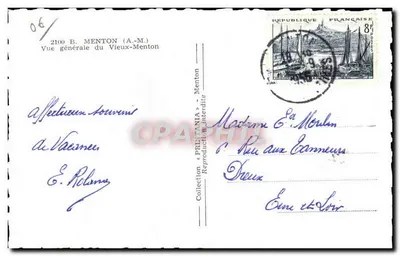 06
2100 B. MENTON (A.-M.)
Vue générale du Vieux-Menton
REPUBLIQUE FRANÇAISE
8F
affectueux souvenir
de Vacances
E.
Collection « » - Menton
Reproduction interdite
Madame Moulin
6 Rue aux Tanneurs
Dreux
Eure et Loir